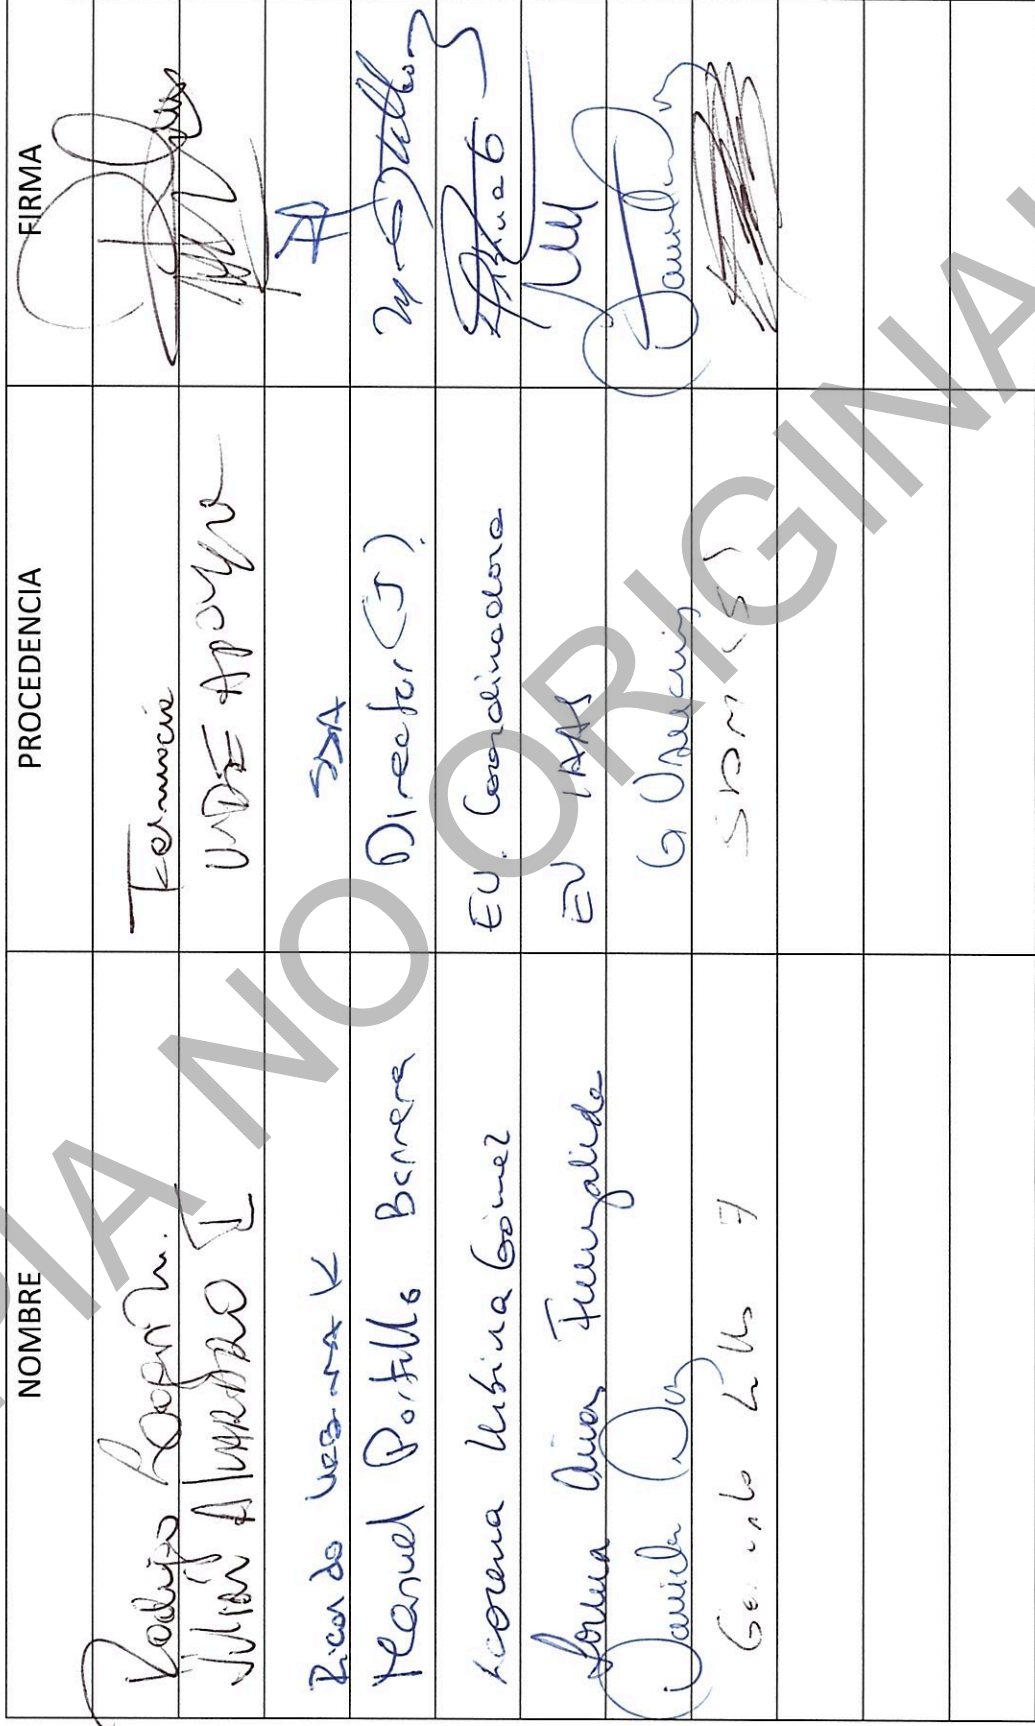 NOMBRE PROCEDENCIA FIRMA
Rodrigo Farmacia
Julián Alvarado I UDE APOYO
Ricardo Urbina K SDA
Manuel Portillo Barrera Director (S).
Lorena Urbina Gómez EU. Coordinadora
Lorena Fuenzalida EU IAAS
Daniela Díaz G Usuario
Gerardo SDM (S)
PIA NO ORIGINA